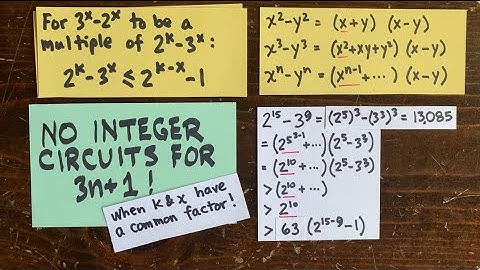 For 3ˣ-2ˣ to be a
multiple of 2ᵏ-3ˣ:
2ᵏ-3ˣ ≤ 2ᵏ⁻ˣ-1
x²-y² = (x+y) (x-y)
x³-y³ = (x²+xy+y²) (x-y)
xⁿ-yⁿ = (xⁿ⁻¹+···) (x-y)
NO INTEGER
CIRCUITS FOR
3n+1!
when k & x have
a common factor!
2¹⁵-3⁹ = (2⁵)³-(3³)³ = 13,085
= (2^5^(3-1)+···) (2⁵-3³)
= (2¹⁰+···) (2⁵-3³)
> (2¹⁰+···)
> 2¹⁰
> 63 (2¹⁵⁻⁹-1)